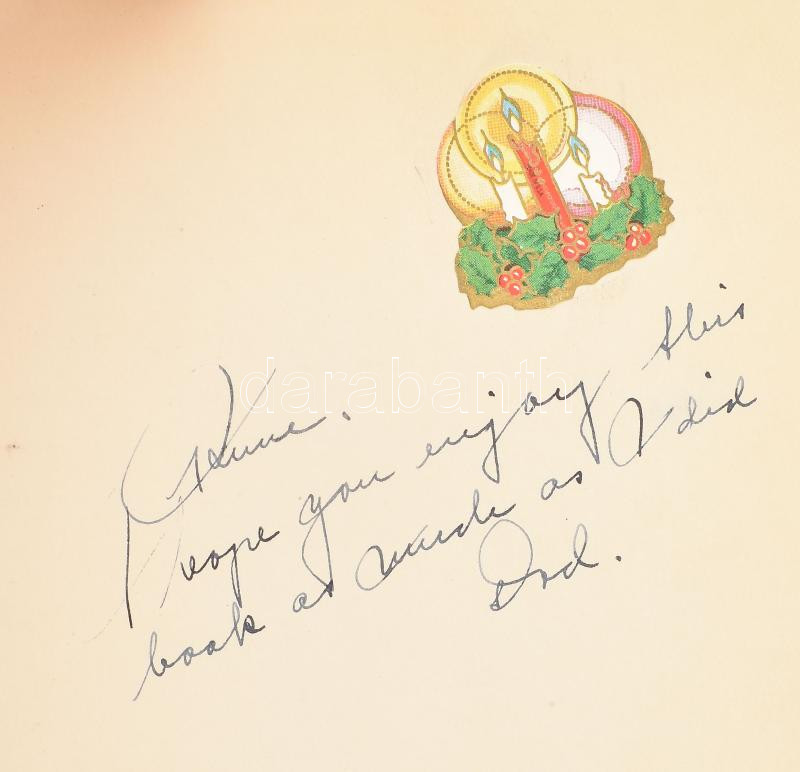 hope you enjoy this
book as much as I did
Dad.
darabanth